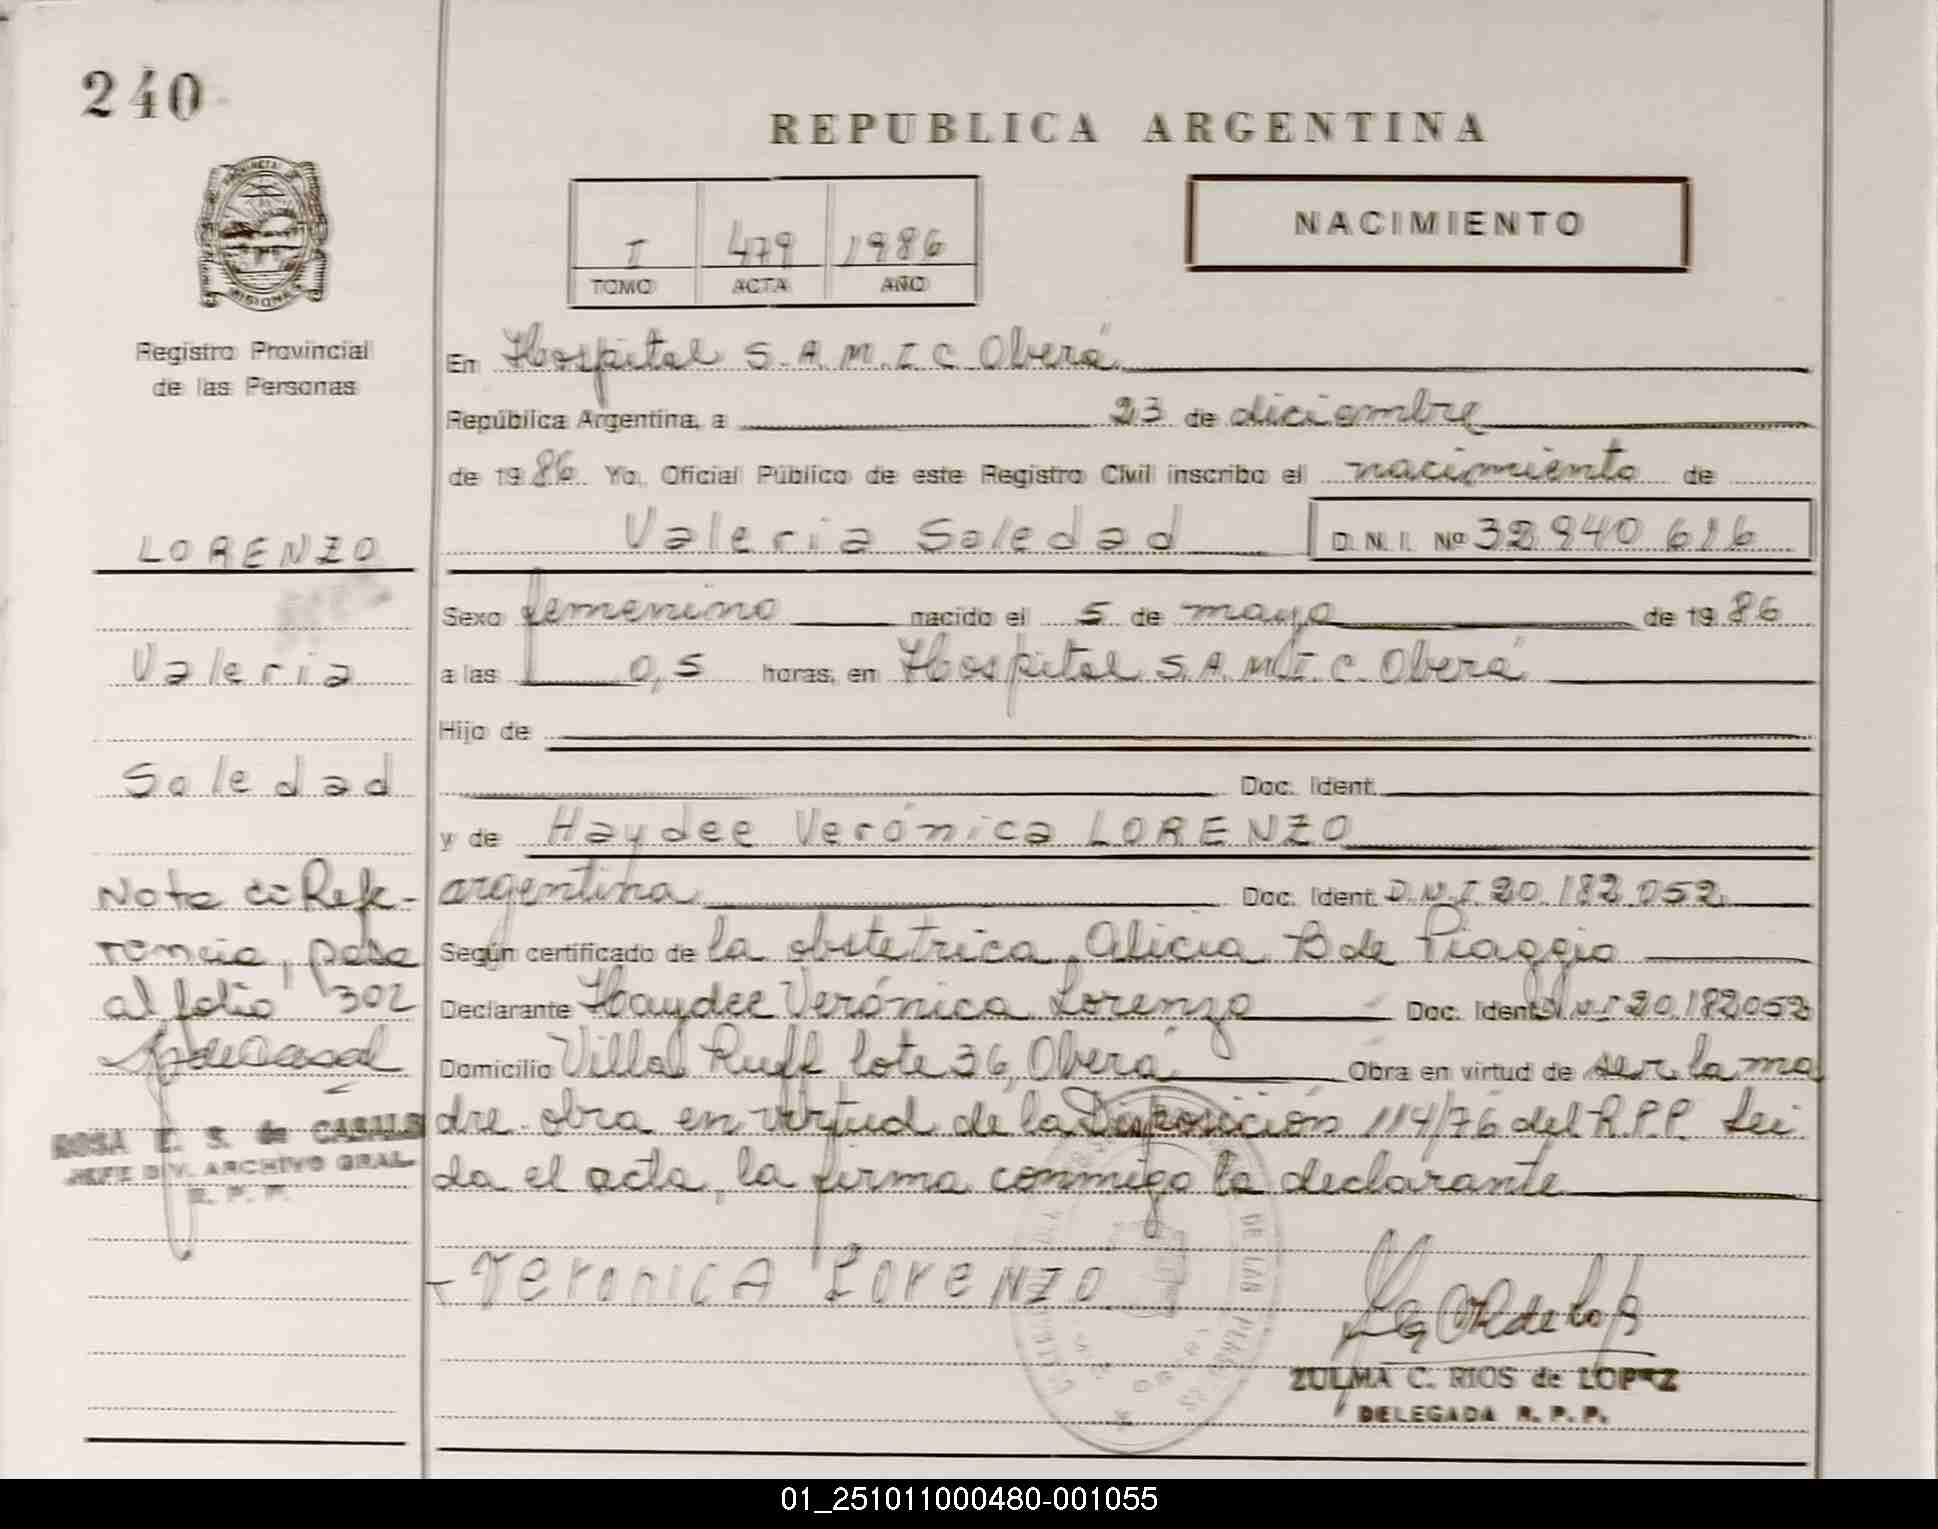 240
REPUBLICA ARGENTINA
NACIMIENTO
I 479 1986
TOMO ACTA AÑO
MISIONES
Registro Provincial
de las Personas
En Hospital S.A.M.I.C Oberá
República Argentina, a 23 de diciembre
de 1986. Yo, Oficial Público de este Registro Civil inscribo el nacimiento de
Valeria Soledad D. N. I. Nº 32 940 616
LORENZO
Valeria
Soledad
Sexo femenino nacido el 5 de mayo de 1986
a las 0,5 horas, en Hospital S.A.M.I.C. Oberá
Hijo de
Doc. Ident.
y de Haydee Verónica LORENZO
argentina Doc. Ident. D.N.I 20.182.052
Según certificado de la obstetrica Alicia B de Piaggio
Declarante Haydee Verónica Lorenzo Doc. Ident. D.N.I 20.182052
Domicilio Villa Ruff lote 36, Oberá Obra en virtud de ser la ma
dre. obra en virtud de la Disposición 114/76 del R.P.P. Lei
da el acta, la firma conmigo la declarante
Nota de Refe-
rencia, pasa
al folio 302
ROSA E. S. de CASALS
JEFE DIV. ARCHIVO GRAL.
R. P. P.
- Veronica Lorenzo
DE LAS PERSONAS
ZULMA C. RIOS de LOPEZ
DELEGADA R. P. P.
01_251011000480-001055